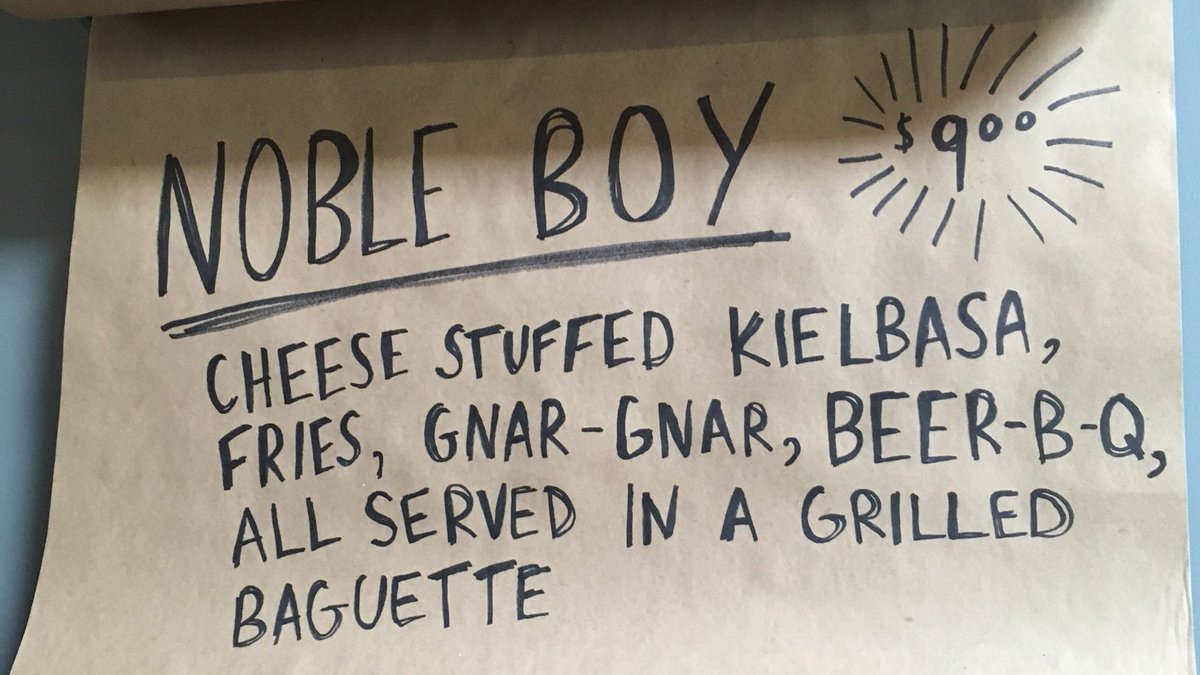 NOBLE BOY
$900
CHEESE STUFFED KIELBASA,
FRIES, GNAR-GNAR, BEER-B-Q,
ALL SERVED IN A GRILLED
BAGUETTE